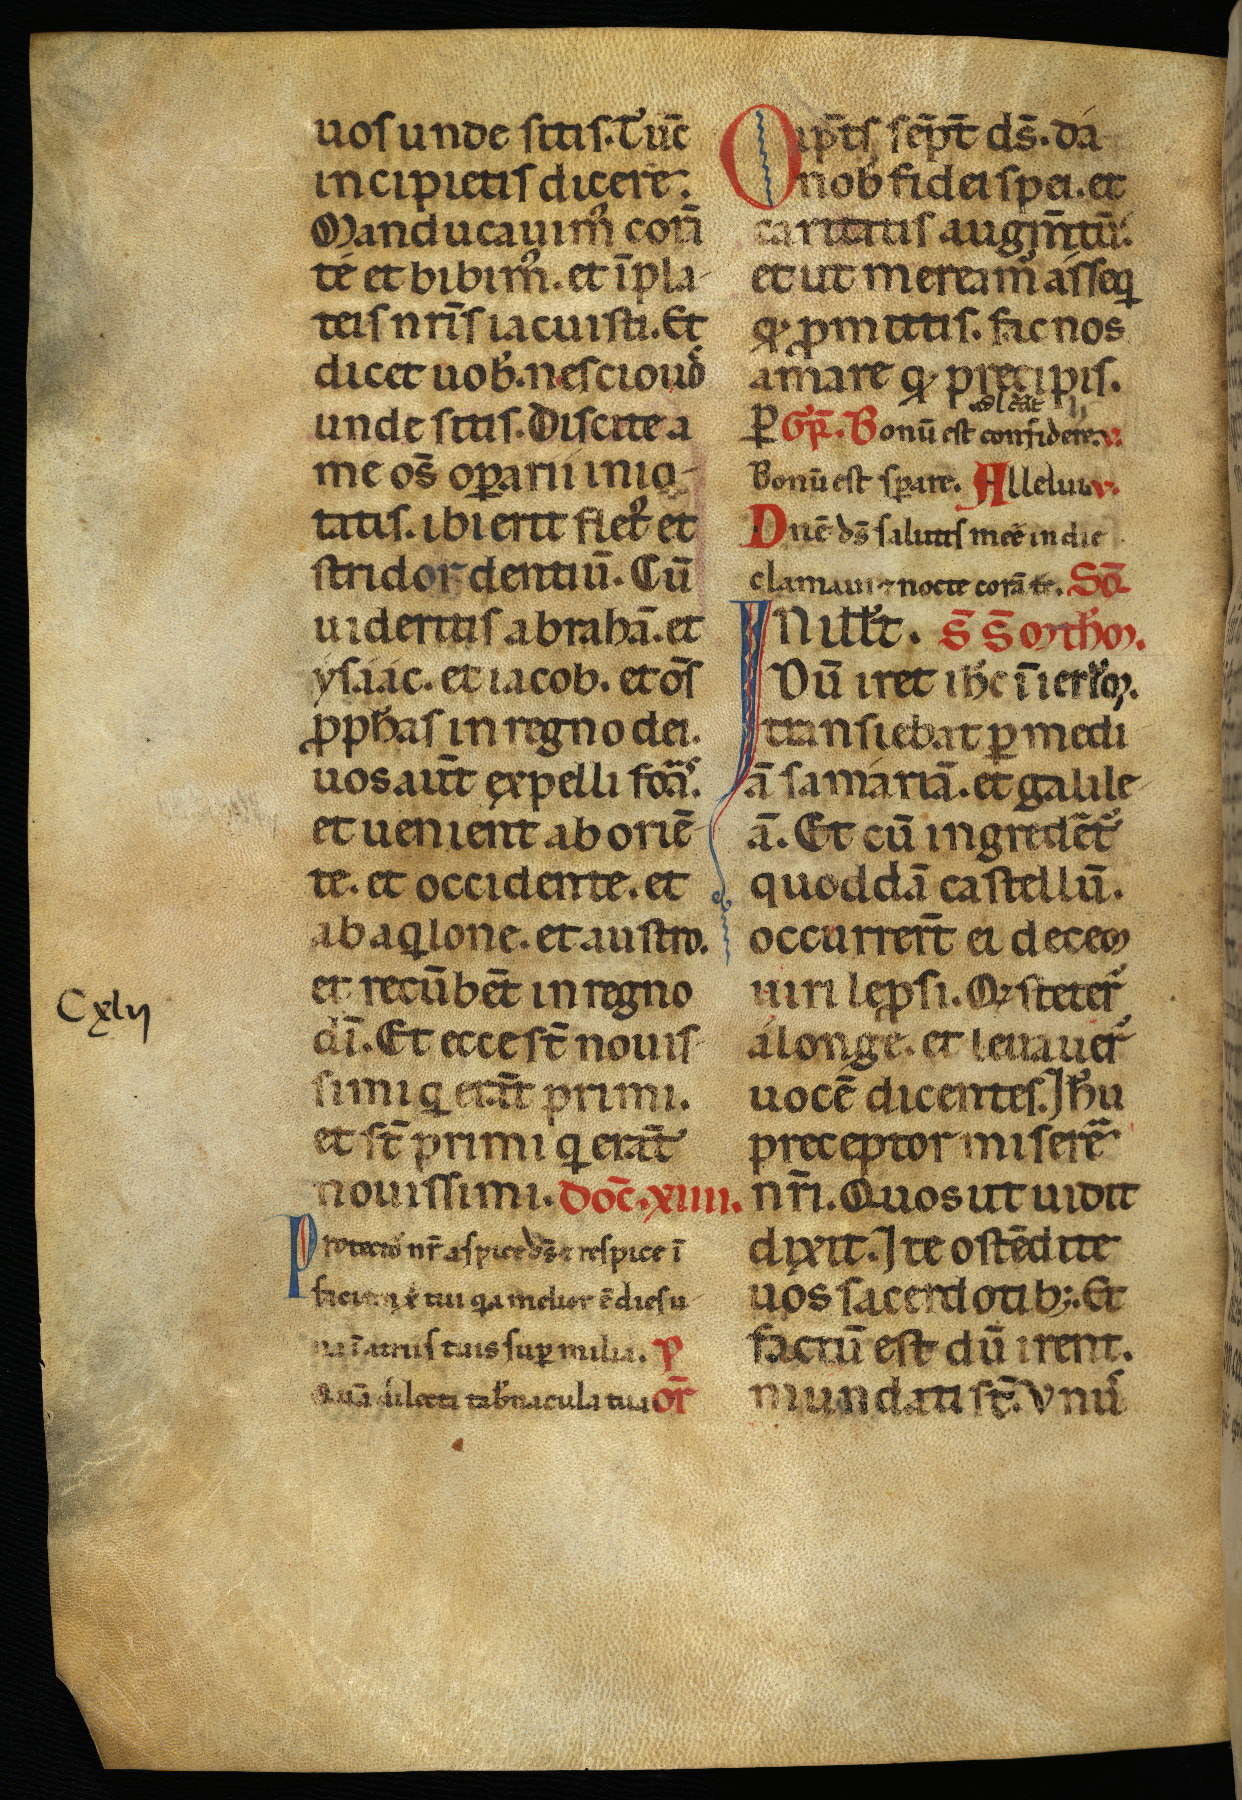 uos unde sitis. Tūc
incipietis dicere.
Manducauim᷒ corā
te et bibim᷒. et ī pla-
teis nr̄is iacuisti. Et
dicet uob̄. nescio uos
unde sitis. Discite a
me oms̄ oꝑarii iniq-
tatis. ibi erit flet᷒ et
stridor dentiū. Cū
uideritis abrahā. et
ysaac. et iacob. et om̄s
ꝓphetas in regno dei.
uos aut̄ expelli foras.
et uenient ab oriē-
te. et occidente. et
ab aqlone. et austro.
et recūbēt in regno
dī. Et ecce st̄ nouis-
simi q̇ erāt primi.
et st̄ primi q̇ erāt
nouissimi. Doc̄. xiiii.
Protector nr̄ aspice ds̄ ⁊ respice ī
faciem xp̄i tui q̇a melior ē dies u-
na ī atriis tuis suꝑ milia. p̄
Quā dilecta tab̄nacula tua or̄
Oip̄ts sēpit̄ ds̄. da
nob̄ fidei spei. et
caritatis augm̄tū.
et ut meream᷒ asseq̇
qď ꝓmittis. fac nos
amare qď precipis.
ꝑ Gr̄. Bonū est confidere. v.
Bonū est sꝑare. Alleluia v.
Dn̄e ds̄ salutis mee in die
clamaui ⁊ nocte corā te. Sc̄
In illo t̄. S̄ S̄
Dū iret ihc̄ ī ierlm̄.
transiebat ꝑ medi
ā samariā. et galile-
ā. Et cū ingredēt᷒
quoddā castellū.
occurrer̄t ei decem
uiri leprosi. Qi steter̄
a longe. et leuauer̄
uocē dicentes. Ihū
preceptor miserē
nr̄i. Quos ut uidit
dixit. Ite ostēdite
uos sacerdotib;. Et
factū est dū irent.
mundati st̄. Vnus
Cxlij